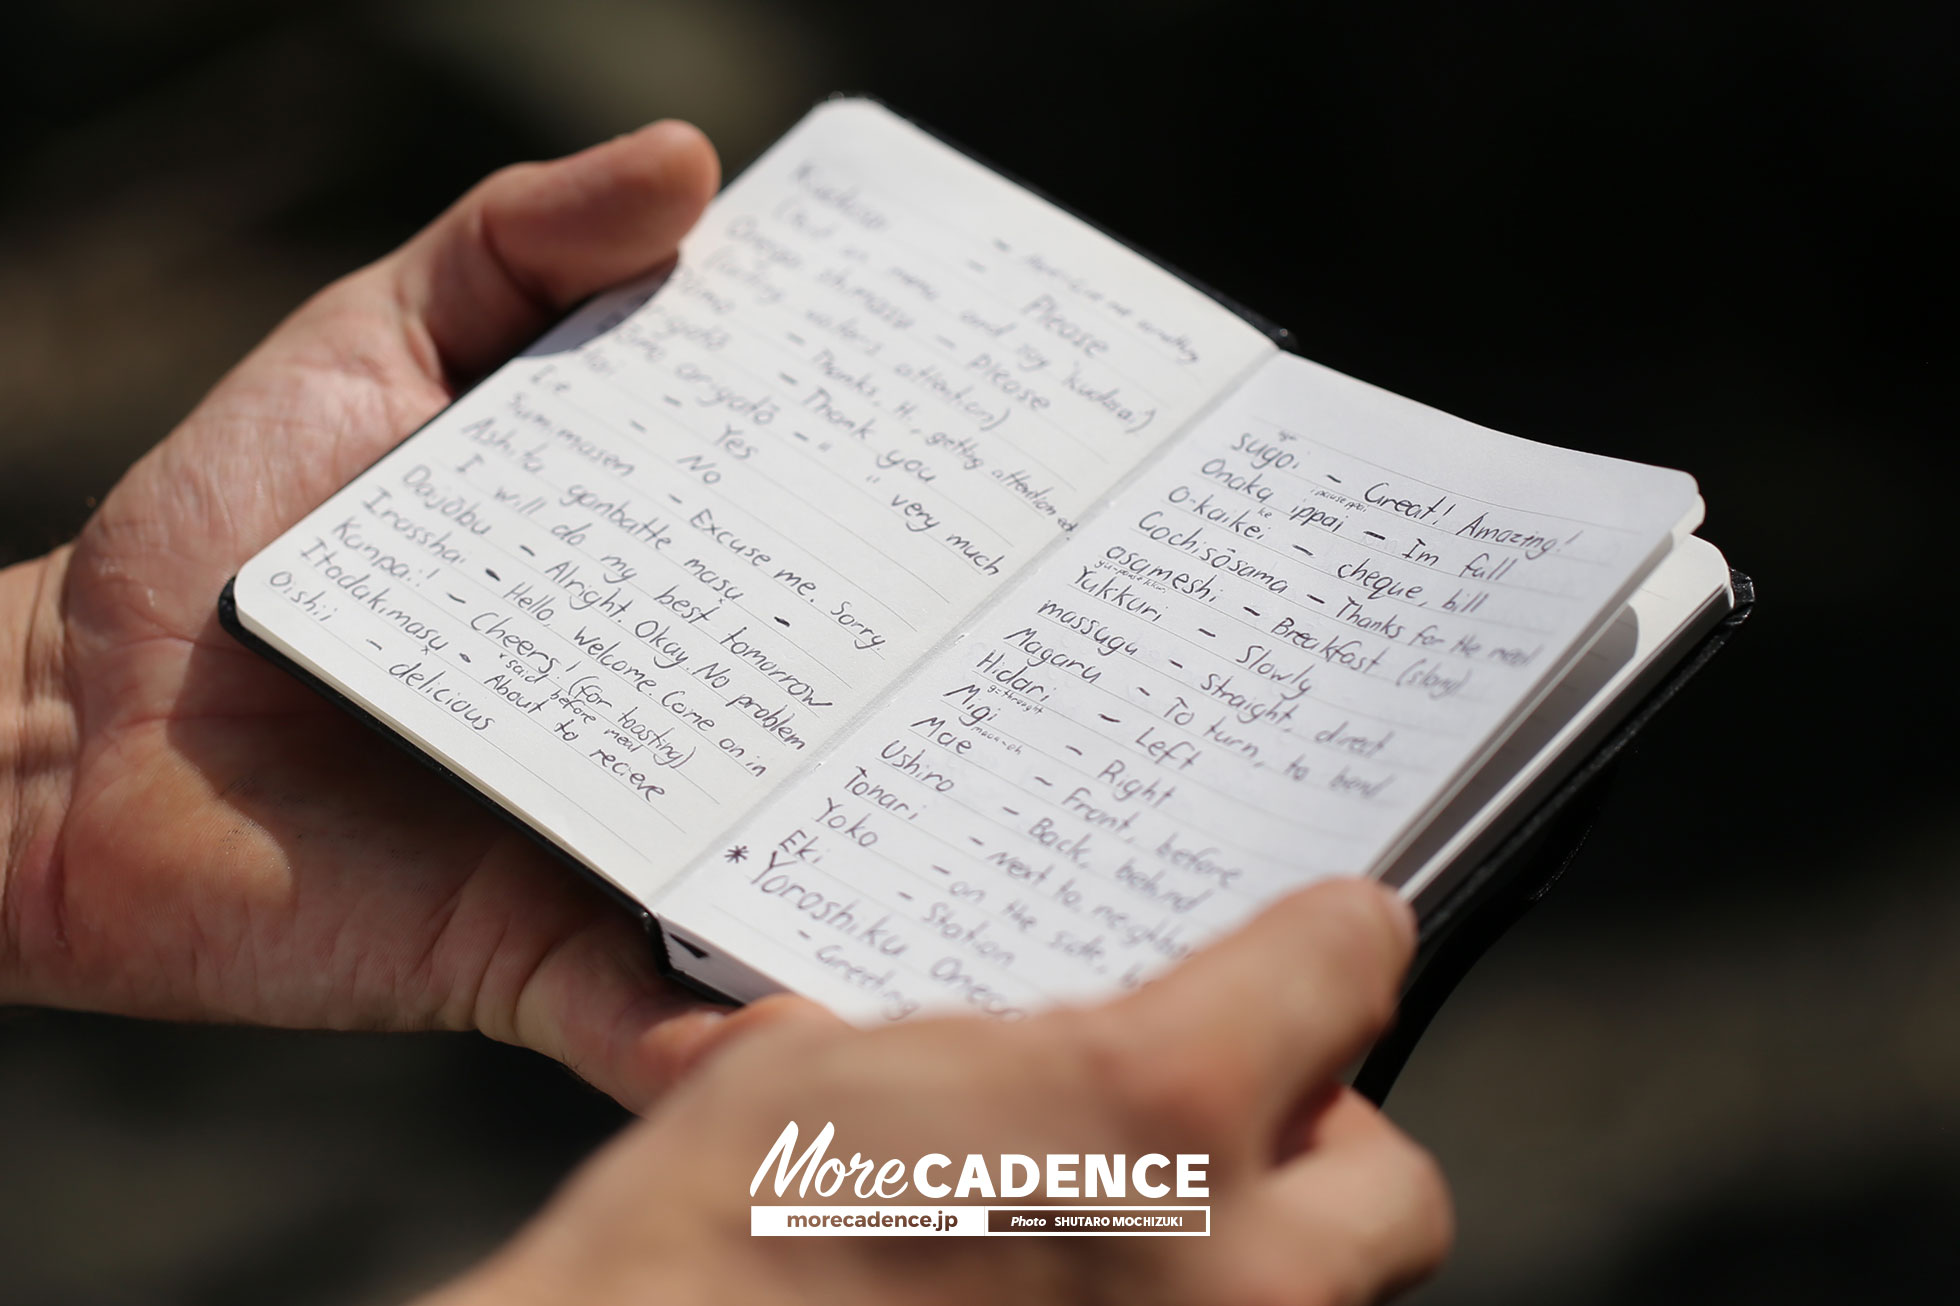 Kudasai
Please
(Point on menu and say 'kudasai')
Onegai shimasu - please
(getting waiters attention)
Dōmo - Thanks, Hi, getting attention
arigatō - Thank you
Dōmo arigatō - " " very much
Hai - Yes
I.e - No
Summimasen - Excuse me. Sorry.
Ashita ganbatte masu -
I will do my best tomorrow
Daijōbu - Alright. Okay. No problem
Irasshai - Hello, Welcome. Come on in
Kanpai! - Cheers! (for toasting)
Itadakimasu - About to recieve
*said before meal
Oishii - delicious
sugoi - Great! Amazing!
Onaka ippai - Im full
O-kaikei - cheque, bill
Gochisōsama - Thanks for the meal
asameshi - Breakfast (slang)
Yukkuri - Slowly
massugu - Straight, direct
Magaru - To turn, to bend
Hidari - Left
Migi - Right
Mae - Front, before
Ushiro - Back, behind
Tonari - Next to, neighbour
Yoko - on the side,
Eki - Station
* Yoroshiku Onegai
- Greeting
More CADENCE
morecadence.jp
Photo SHUTARO MOCHIZUKI